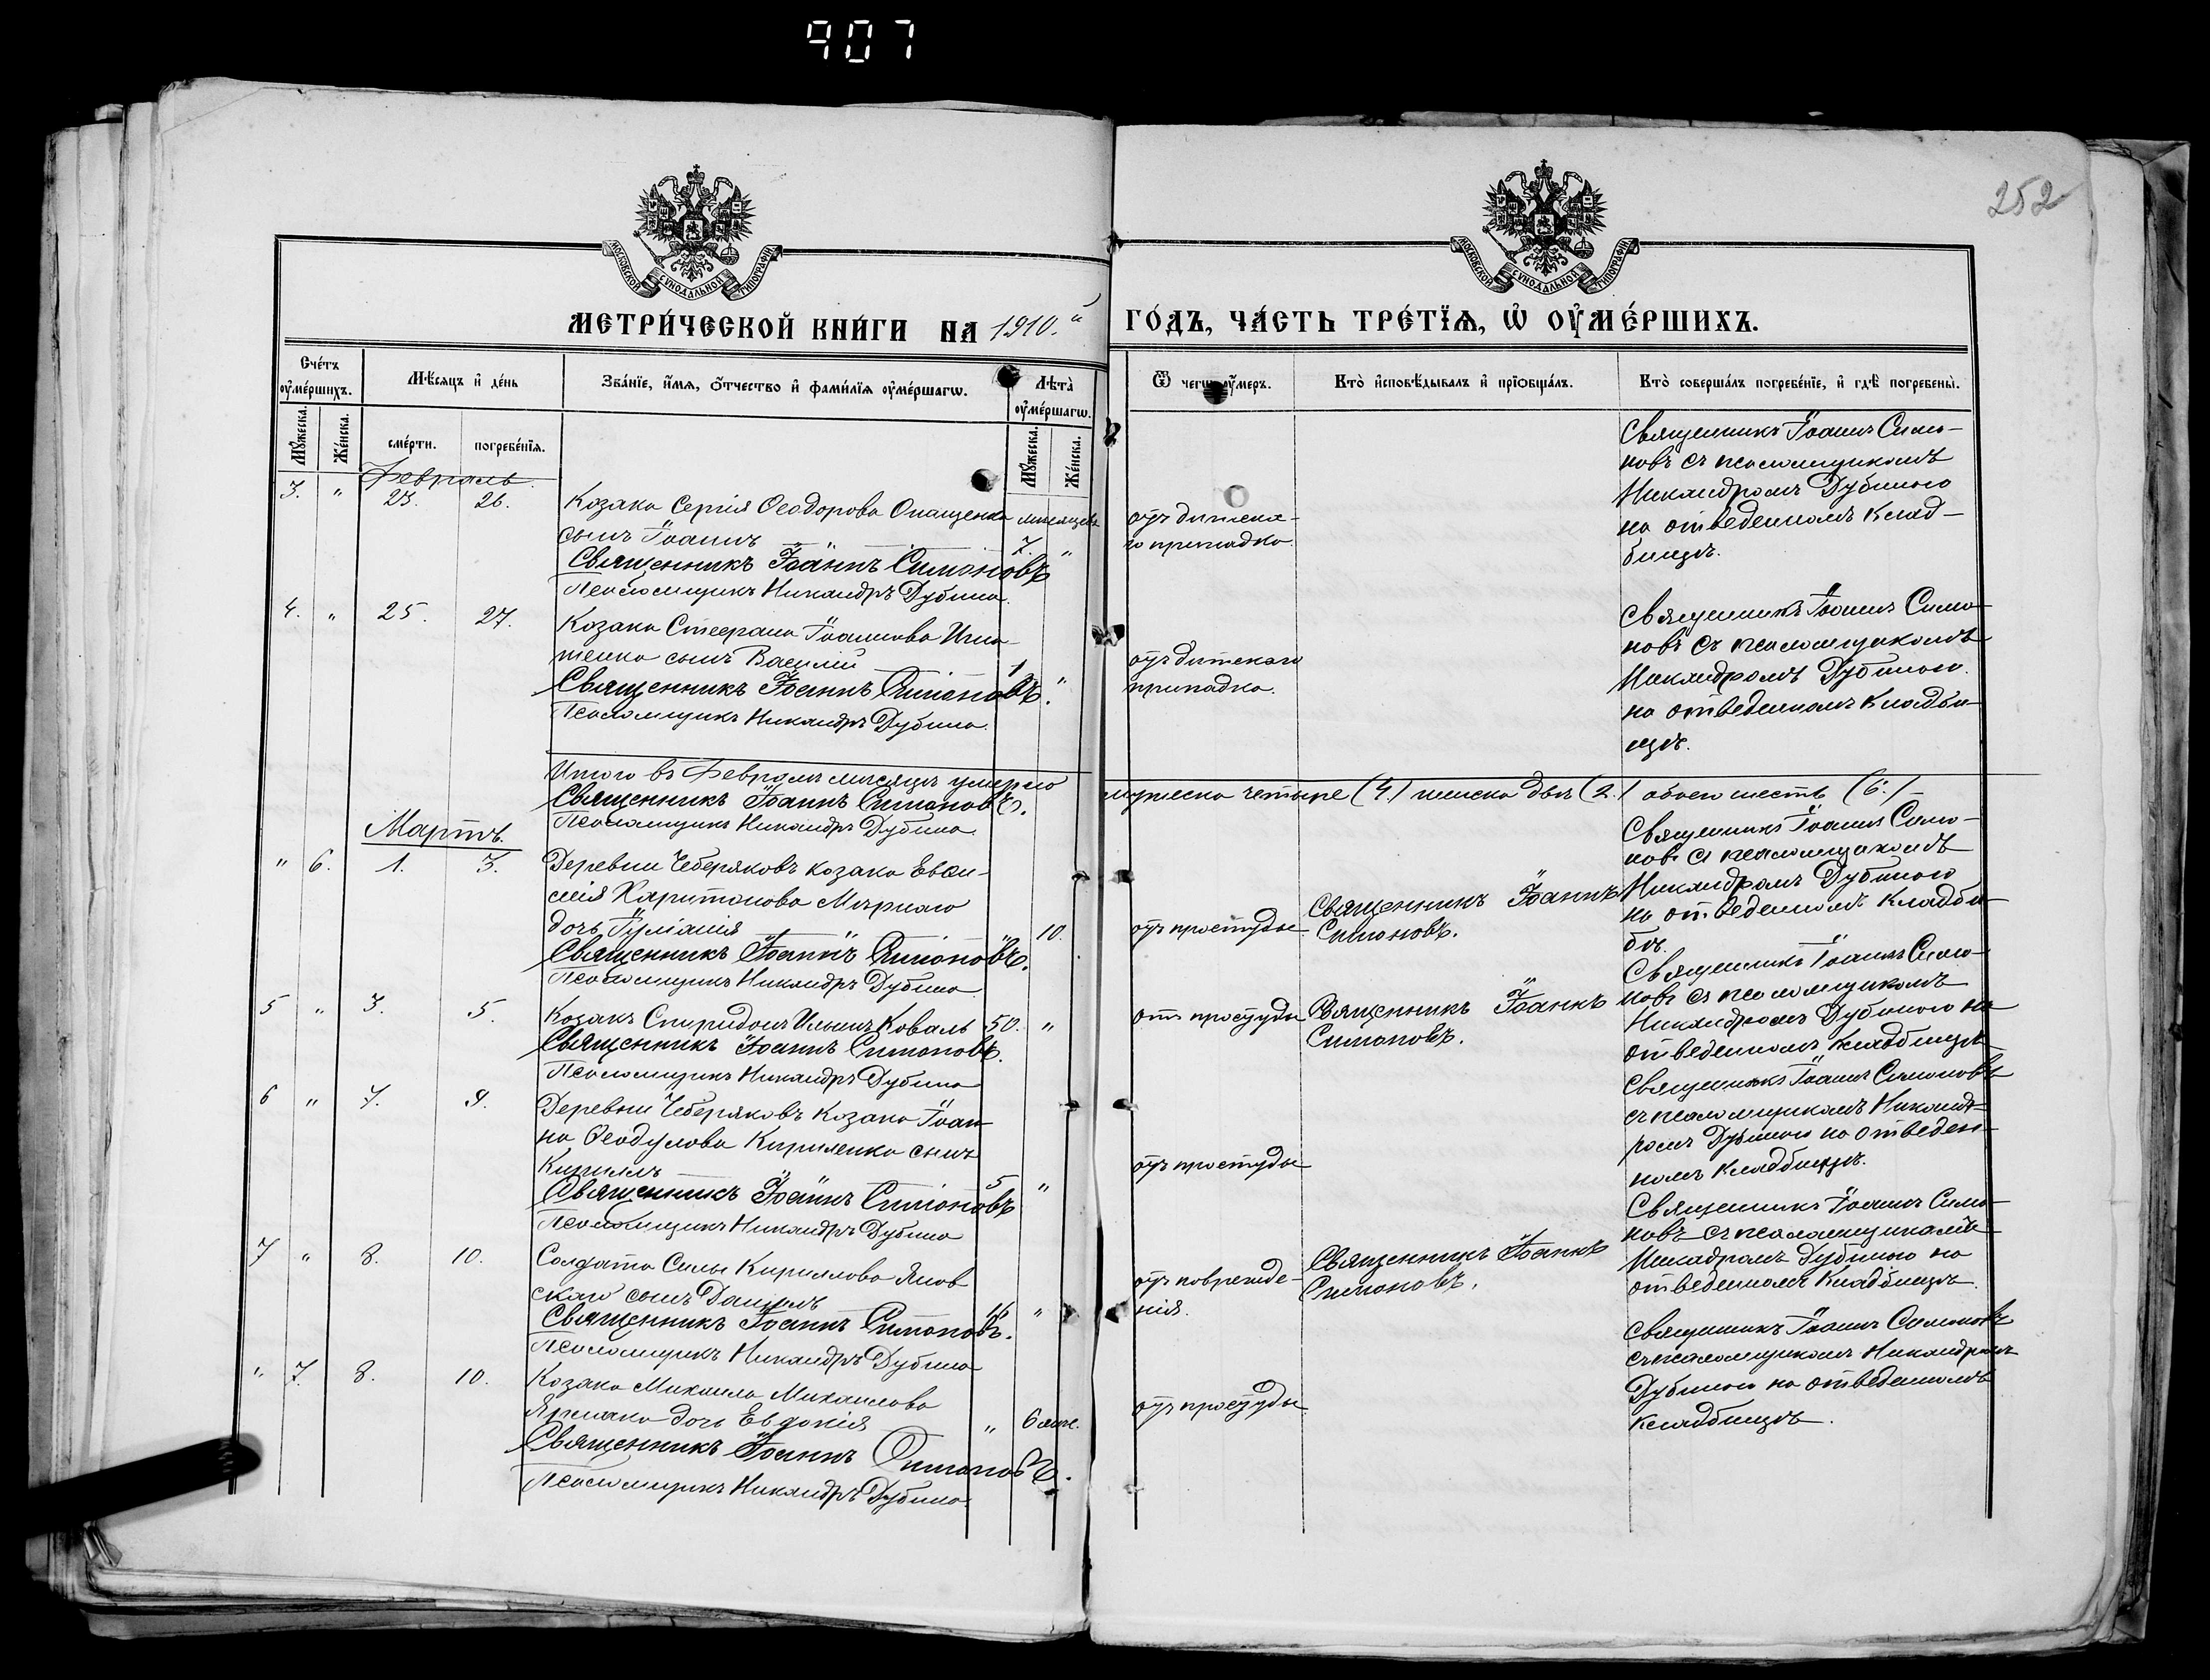 907
252
МОСКОВСКОЙ СУНОДАЛЬНОЙ ТИПОГРАФІИ
МОСКОВСКОЙ СУНОДАЛЬНОЙ ТИПОГРАФІИ
МЕТРИ́ЧЕСКОЙ КНИ́ГИ НА 1910.й ГО́ДЪ, ЧА́СТЬ ТРЕ́ТЇѦ, Ѡ҆ ОУ҆МЕ́РШИХЪ.
Сче́тъ оу҆ме́ршихъ.
Мꙋ́жеска.
Же́нска.
Мѣ́сяцъ и҆ де́нь
сме́рти.
погребе́нїѧ.
Зва́нїе, и҆́мѧ, ѻ҆́тчество и҆ фами́лїѧ оу҆ме́ршагѡ.
Лѣта̀ оу҆ме́ршагѡ.
Мꙋ́жеска.
Же́нска.
Ѿ чегѡ̀ оу҆́меръ.
Кто̀ и҆сповѣ́дывалъ и҆ прїѡбща́лъ.
Кто̀ соверша́лъ погребе́нїе, и҆ гдѣ̀ погребены̀.
Февраль.
3. " 23. 26.
Козака Сергія Ѳеодорова Онащенка
сынъ Іоаннъ
мѣсяцевъ
7. "
Священникъ Іоаннъ Симоновъ
Псаломщикъ Никандръ Дубина.
отъ дѣтска-
го припадка.
Священникъ Іоаннъ Симо-
новъ съ псаломщикомъ
Никандромъ Дубиною
на отведенномъ клад-
бищѣ.
4. " 25. 27.
Козака Стефана Іоаннова Игна-
тенка сынъ Василій
1 "
Священникъ Іоаннъ Симоновъ.
Псаломщикъ Никандръ Дубина.
отъ дѣтскаго
припадка.
Священникъ Іоаннъ Симо-
новъ съ псаломщикомъ
Никандромъ Дубиною.
на отведенномъ кладби-
щѣ.
Итого въ Февралѣ мѣсяцѣ умерло мужеска четыре (4.) женска двѣ (2.) обоего шесть (6.)
Священникъ Іоаннъ Симоновъ.
Псаломщикъ Никандръ Дубина.
Мартъ.
" 6. 1. 3.
Деревни Чеберяковъ козака Евѳи-
мія Харитонова Мирнаго
дочь Іуліанія
" 10.
Священникъ Іоаннъ Симоновъ.
Псаломщикъ Никандръ Дубина
отъ простуды
Священникъ Іоаннъ
Симоновъ.
Священникъ Іоаннъ Симо-
новъ съ псаломщикомъ
Никандромъ Дубиною
на отведенномъ кладби-
5 " 3. 5.
Козакъ Спиридонъ Ильинъ Коваль 50. "
Священникъ Іоаннъ Симоновъ.
Псаломщикъ Никандръ Дубина
отъ простуды
Священникъ Іоаннъ
Симоновъ.
Священникъ Іоаннъ Симо-
новъ съ псаломщикомъ
Никандромъ Дубиною на
отведенномъ кладбищѣ
6 " 7. 9.
Деревни Чеберяковъ козака Іоан-
на Ѳеодулова Кириленка сынъ
Кириллъ
5 "
Священникъ Іоаннъ Симоновъ
Псаломщикъ Никандръ Дубина
отъ простуды
Священникъ Іоаннъ Симоновъ
съ псаломщикомъНиканд-
ромъ Дубиною на отведен-
номъ кладбищѣ.
7 " 8. 10.
Солдата Силы Кириллова Янов-
скаго сынъ Даніилъ
16 "
Священникъ Іоаннъ Симоновъ.
Псаломщикъ Никандръ Дубина
отъ поврежде-
нія.
Священникъ Іоаннъ
Симоновъ.
Священникъ Іоаннъ Симо-
новъ съ псаломщикомъ
Никадромъ Дубиною на
отведенномъ кладбищѣ.
" 7. 8. 10.
Козака Михаила Михаилова
дочь Евдокія
" 6 мѣс.
Священникъ Іоаннъ Симоновъ.
Псаломщикъ Никандръ Дубина.
отъ простуды
Священникъ Іоаннъ Симоновъ
съ псаломщикомъ Никандромъ
Дубиною на отведенномъ
кладбищѣ.